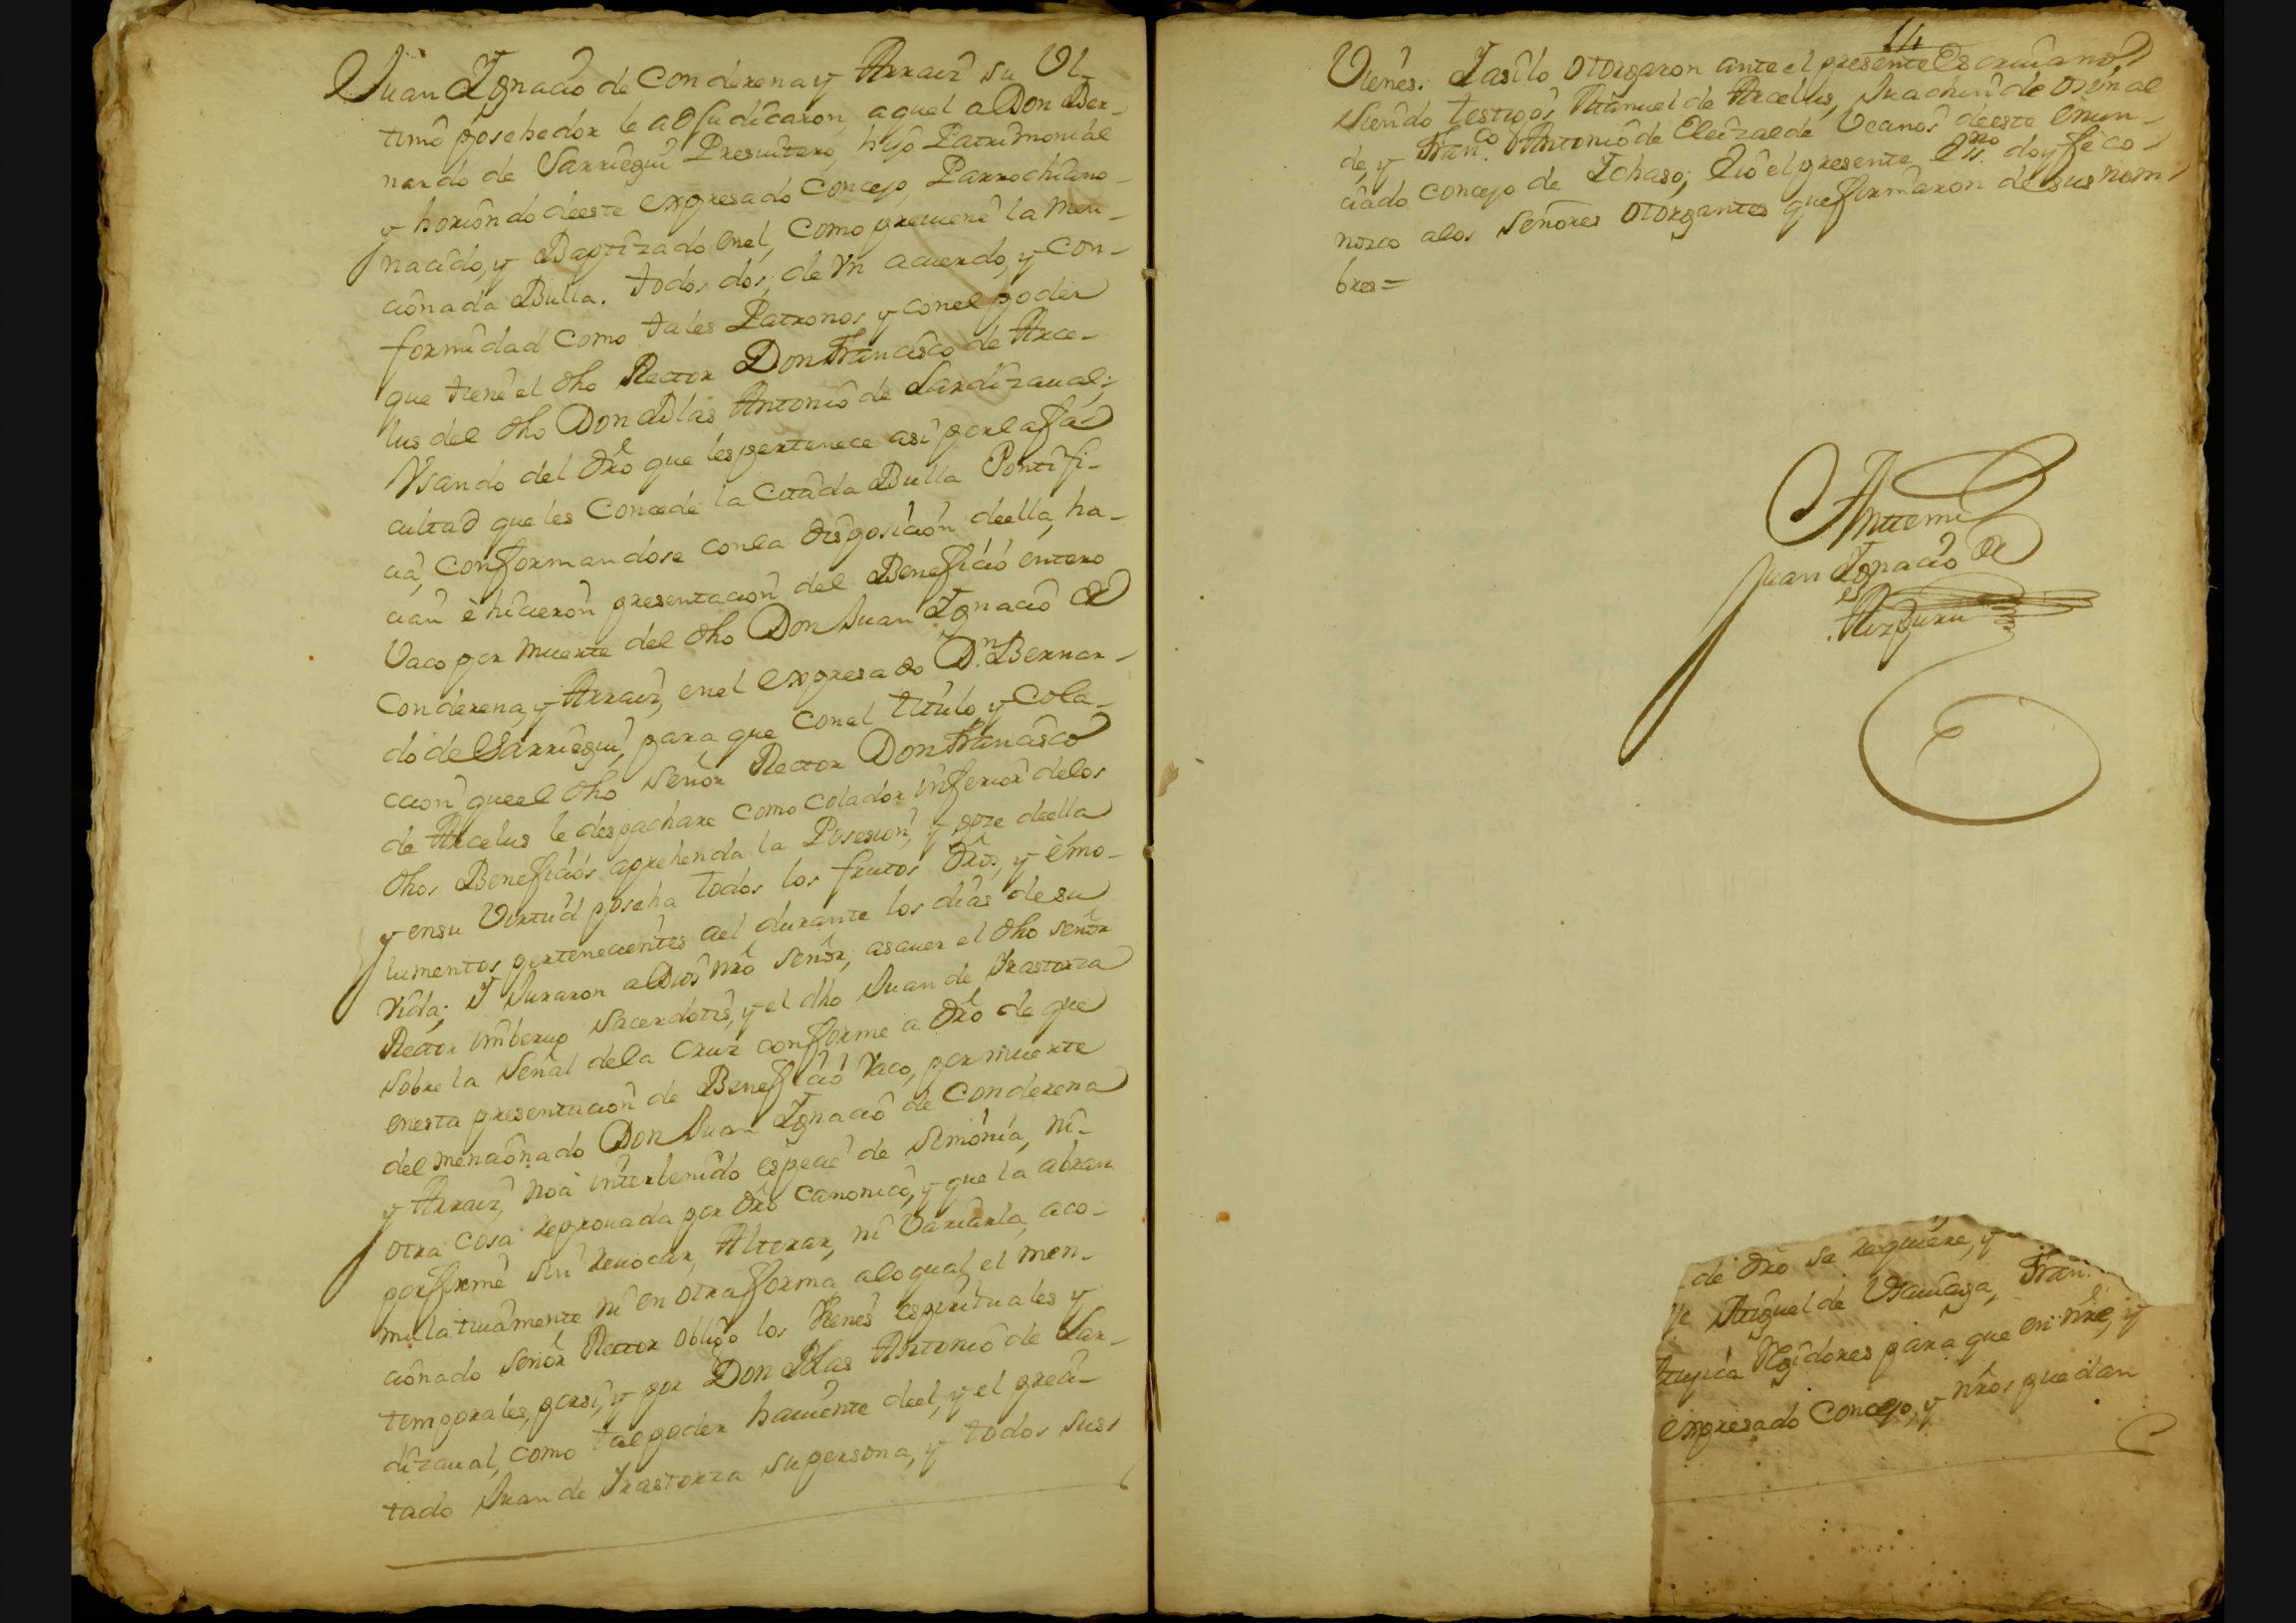 Juan Ignacio de Conderena y Arraiz su Ul-
timo posehedor le adjudicaron aquel a Don Ber-
nardo de Sarriegui Presuitero, hijo Patrimonial
y horiondo deeste expresado Concejo, Parrochiano
nacido, y Baptizado enel, como preuiene la men-
cionada Bulla. todos dos, de Vn acuerdo, y con-
formidad como tales Patronos y conel poder
que tiene el dho Rector Don Francisco de Arce-
lus del dho Don Blas Antonio de Lardizaual;
Vsando del dro que les pertenece asi por la fa-
cultad que les Concede la Citada Bulla Pontifi-
cia, conformandose conla disposicion deella, ha-
cian è hicieron presentacion del Beneficio entero
Vaco por muerte del dho Don Juan Ignacio de
Conderena, y Arraiz, enel expresado Dn. Bernar-
do de Sarriegui, para que conel titulo y Cola-
ccion que el dho señor Rector Don Francisco
de Arcelus le despachare como Colador inferior delos
dhos Beneficios aprehenda la Posesion, y goze deella
y ensu Virtud poseha todos los frutos dros, y emo-
lumentos pertenecientes ael durante los dias de su
Vida; Y Juraron a Dios nro señor, asauer el dho señor
Rector inberuo Sacerdotis, y el dho Juan de Yrastorza
sobre la señal dela Cruz conforme a dro de que
enesta presentacion de Beneficio Vaco, por muerte
del mencionado Don Juan Ignacio de Conderena
y Arraiz, no à interbenido especie de simonia, ni-
otra cosa reprouada por dro canonico, y que la abran
por firme sin reuocar, Alterar, ni Variarla, aco-
mulatiuamente ni en otra forma, alo qual el men-
cionado señor Rector obligo los Vienes espirituales y
temporales, por si, y por Don Blas Antonio de Lar-
dizaual, como tal poder hauiente deel, y el preci-
tado Juan de Yrastorza su persona, y todos sus
14
Vienes. Y asi lo otorgaron ante el presente Escriuano
siendo testigos Manuel de Arcelus, Joachin de
de, y Franco. Antonio de Eleizalde Vecinos deeste enun-
ciado concejo de Ichaso; E yo el presente essno. doy fe co-
nozco alos señores otorgantes que firmaron de sus nom-
bres=
Antemi
Juan Ignacio de
Aizpuru
de dro se requiere, y
Miguel de Fran.
Regidores para que en nre, y
expresado Concejo, y nros puedan